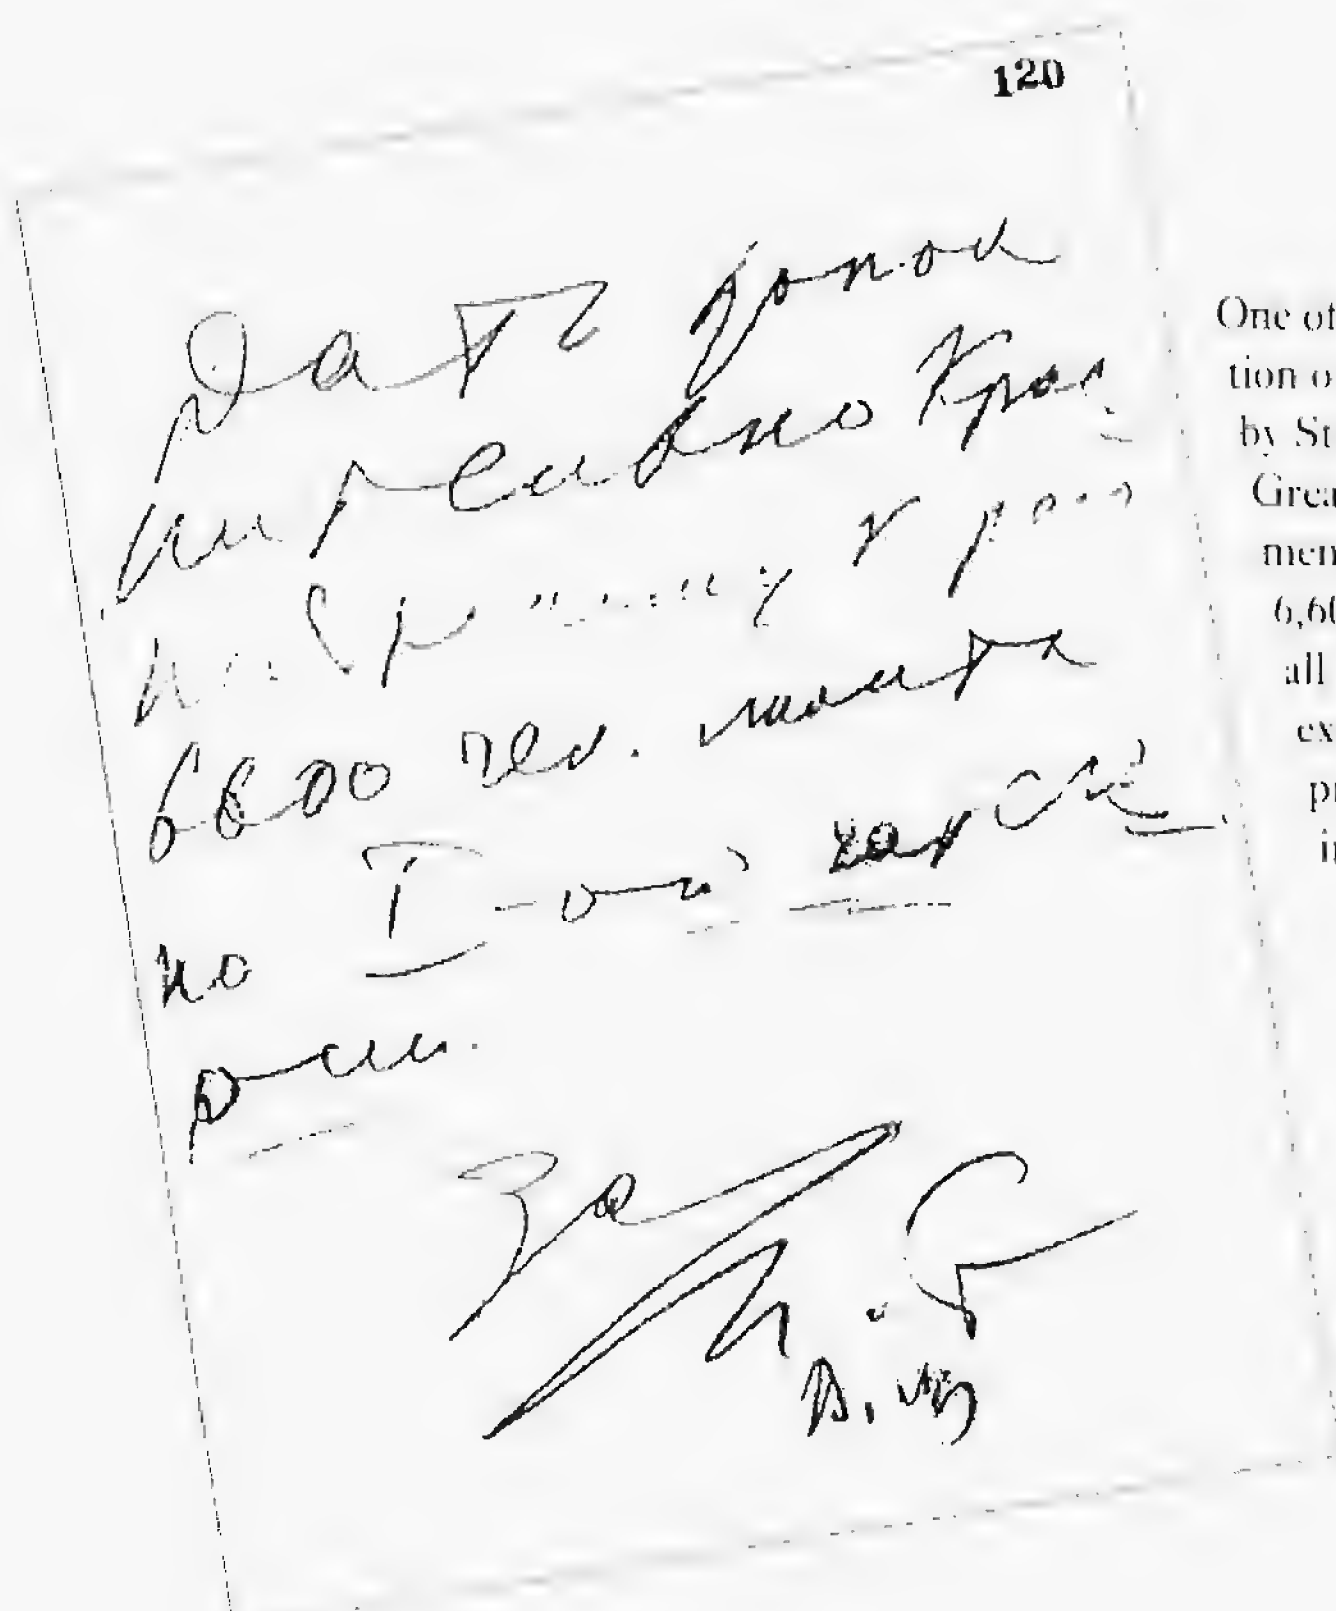 120
Дать дополн
ительно Крас
ноярскому краю
6600 чел. лимита
по I-ой катего
рии.
За
И. Ст
В. Мо
One of
tion o
by St
Grea
men
6,60
all
ex
pr
in